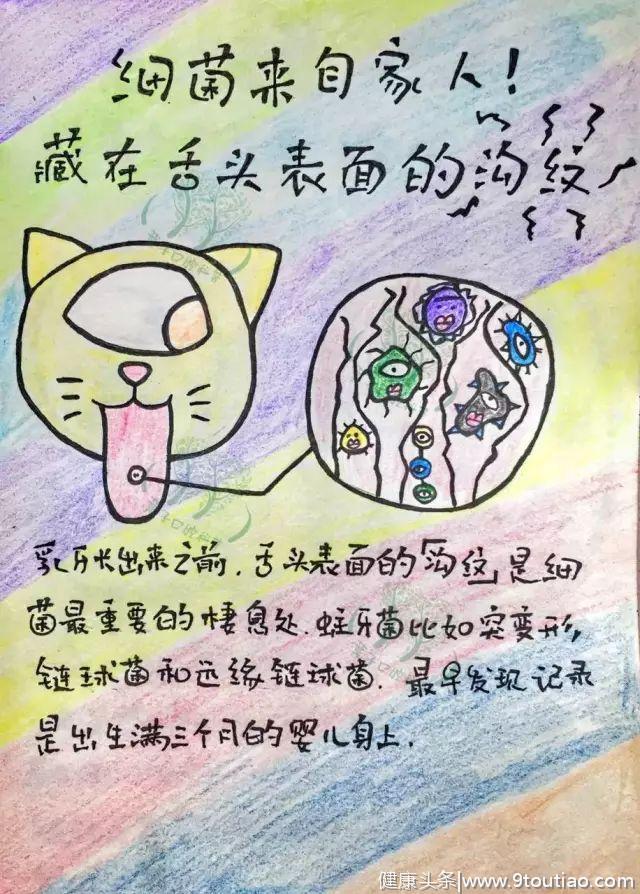 细菌来自家人!
藏在舌头表面的沟纹
乳牙长出来之前.舌头表面的沟纹是细
菌最重要的栖息处.蛀牙菌比如突变形
链球菌和远缘链球菌.最早发现记录
是出生满三个月的婴儿身上.
健康头条|www.9toutiao.com